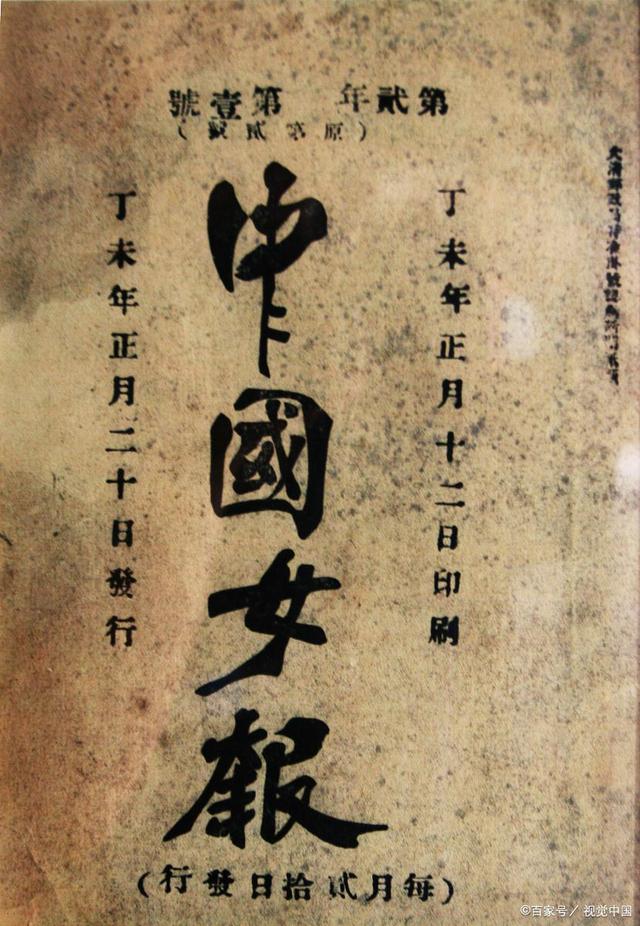 第貳年 第壹號
(原第貳號)
大清郵政 掛號認
丁未年正月十二日印刷
中國女報
丁未年正月二十日發行
(每月貳拾日發行)
©百家号/视觉中国